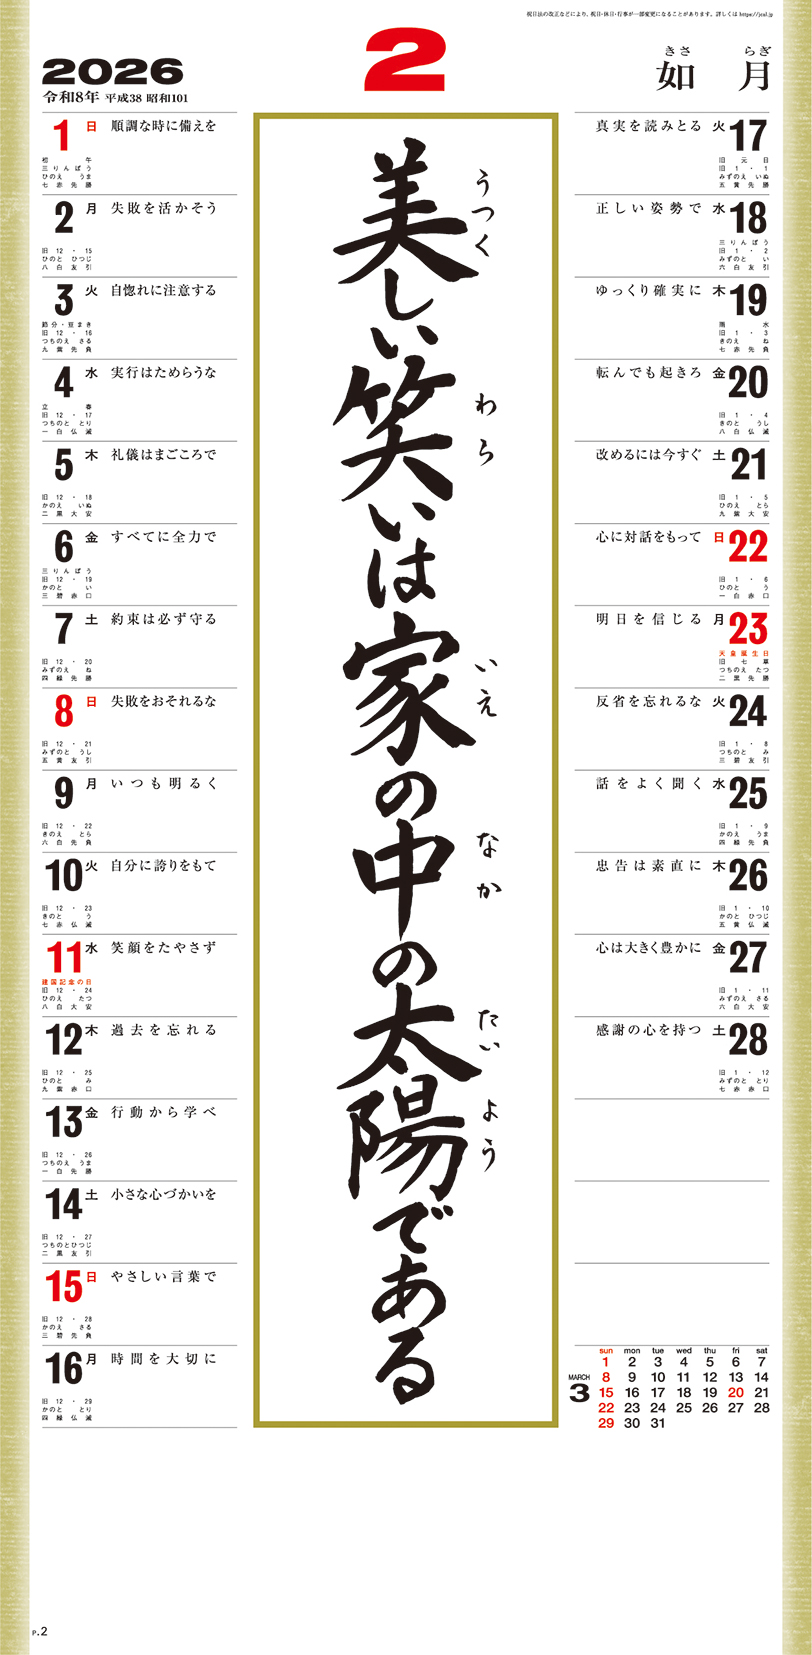 祝日法の改正などにより、祝日・休日・行事が一部変更になることがあります。詳しくは https://jcal.jp
2026
令和8年 平成38 昭和101
2
きさ らぎ
如 月
1 日 順調な時に備えを
三りんぼう
ひのえ うま
七赤先勝
2 月 失敗を活かそう
旧12・15
ひのと ひつじ
八白友引
3 火 自惚れに注意する
節分・豆まき
旧12・16
つちのえ さる
九紫先負
4 水 実行はためらうな
立春
旧12・17
つちのと とり
一白仏滅
5 木 礼儀はまごころで
旧12・18
かのえ いぬ
二黒大安
6 金 すべてに全力で
三りんぼう
旧12・19
かのと い
三碧赤口
7 土 約束は必ず守る
旧12・20
みずのえ ね
四緑先勝
8 日 失敗をおそれるな
旧12・21
みずのと うし
五黄友引
9 月 いつも明るく
旧12・22
きのえ とら
六白先負
10 火 自分に誇りをもて
旧12・23
きのと う
七赤仏滅
11 水 笑顔をたやさず
建国記念の日
旧12・24
ひのえ たつ
八白大安
12 木 過去を忘れる
旧12・25
ひのと み
九紫赤口
13 金 行動から学べ
旧12・26
つちのえ うま
一白先勝
14 土 小さな心づかいを
旧12・27
つちのとひつじ
二黒友引
15 日 やさしい言葉で
旧12・28
かのえ さる
三碧先負
16 月 時間を大切に
旧12・29
かのと とり
四緑仏滅
美しい笑いは家の中の太陽である
うつく
わら
いえ
なか
たいよう
真実を読みとる 火 17
旧元日
旧1・1
みずのえ いぬ
五黄先勝
正しい姿勢で 水 18
三りんぼう
旧1・2
みずのと い
六白友引
ゆっくり確実に 木 19
雨水
旧1・3
きのえ ね
七赤先負
転んでも起きろ 金 20
旧1・4
きのと うし
八白仏滅
改めるには今すぐ 土 21
旧1・5
ひのえ とら
九紫大安
心に対話をもって 日 22
旧1・6
ひのと う
一白赤口
明日を信じる 月 23
天皇誕生日
旧七草
つちのえ たつ
二黒先勝
反省を忘れるな 火 24
旧1・8
つちのと み
三碧友引
話をよく聞く 水 25
旧1・9
かのえ うま
四緑先負
忠告は素直に 木 26
旧1・10
かのと ひつじ
五黄仏滅
心は大きく豊かに 金 27
旧1・11
みずのえ さる
六白大安
感謝の心を持つ 土 28
旧1・12
みずのと とり
七赤赤口
MARCH
3
sun mon tue wed thu fri sat
1 2 3 4 5 6 7
8 9 10 11 12 13 14
15 16 17 18 19 20 21
22 23 24 25 26 27 28
29 30 31
P.2